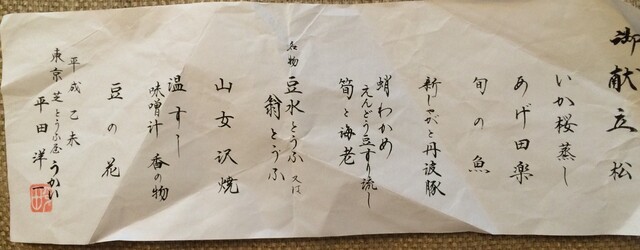 御献立 松
いか桜蒸し
あげ田楽
旬の魚
新じゃがと丹波豚
蛸わかめ
えんどう豆すり流し
筍と海老
名物 豆水とうふ 又は
翁とうふ
山女沢焼
温すし
味噌汁 香の物
豆の花
平成 乙未
東京 芝とうふ屋うかい
平田洋一